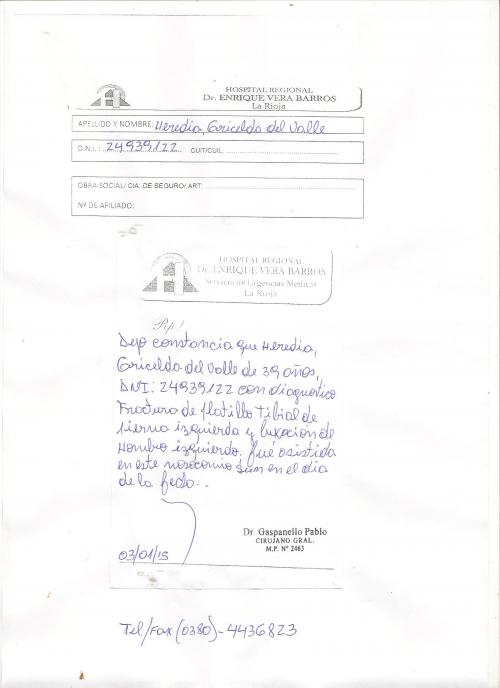 HOSPITAL REGIONAL
Dr. ENRIQUE VERA BARROS
La Rioja
APELLIDO Y NOMBRE: Heredia, Gricelda del Valle
D.N.I.: 24939122 CUIT/CUIL:
OBRA SOCIAL/ CIA. DE SEGURO/ ART:
Nº DE AFILIADO:
HOSPITAL REGIONAL
Dr. ENRIQUE VERA BARROS
Servicio de Urgencias Médicas
La Rioja
Rp!
Dejo constancia que Heredia,
Griceldo del Valle de 39 años,
DNI: 24939122 con diagnostico
Fractura de Platillo Tibial de
Pierna izquierda y luxacion de
Hombro izquierdo. fué asistida
en este nosocomio en el dia
de la fecha..
Dr. Gaspanello Pablo
CIRUJANO GRAL.
M.P. Nº 2463
03/01/15
Tel/Fax (0380)-4436823